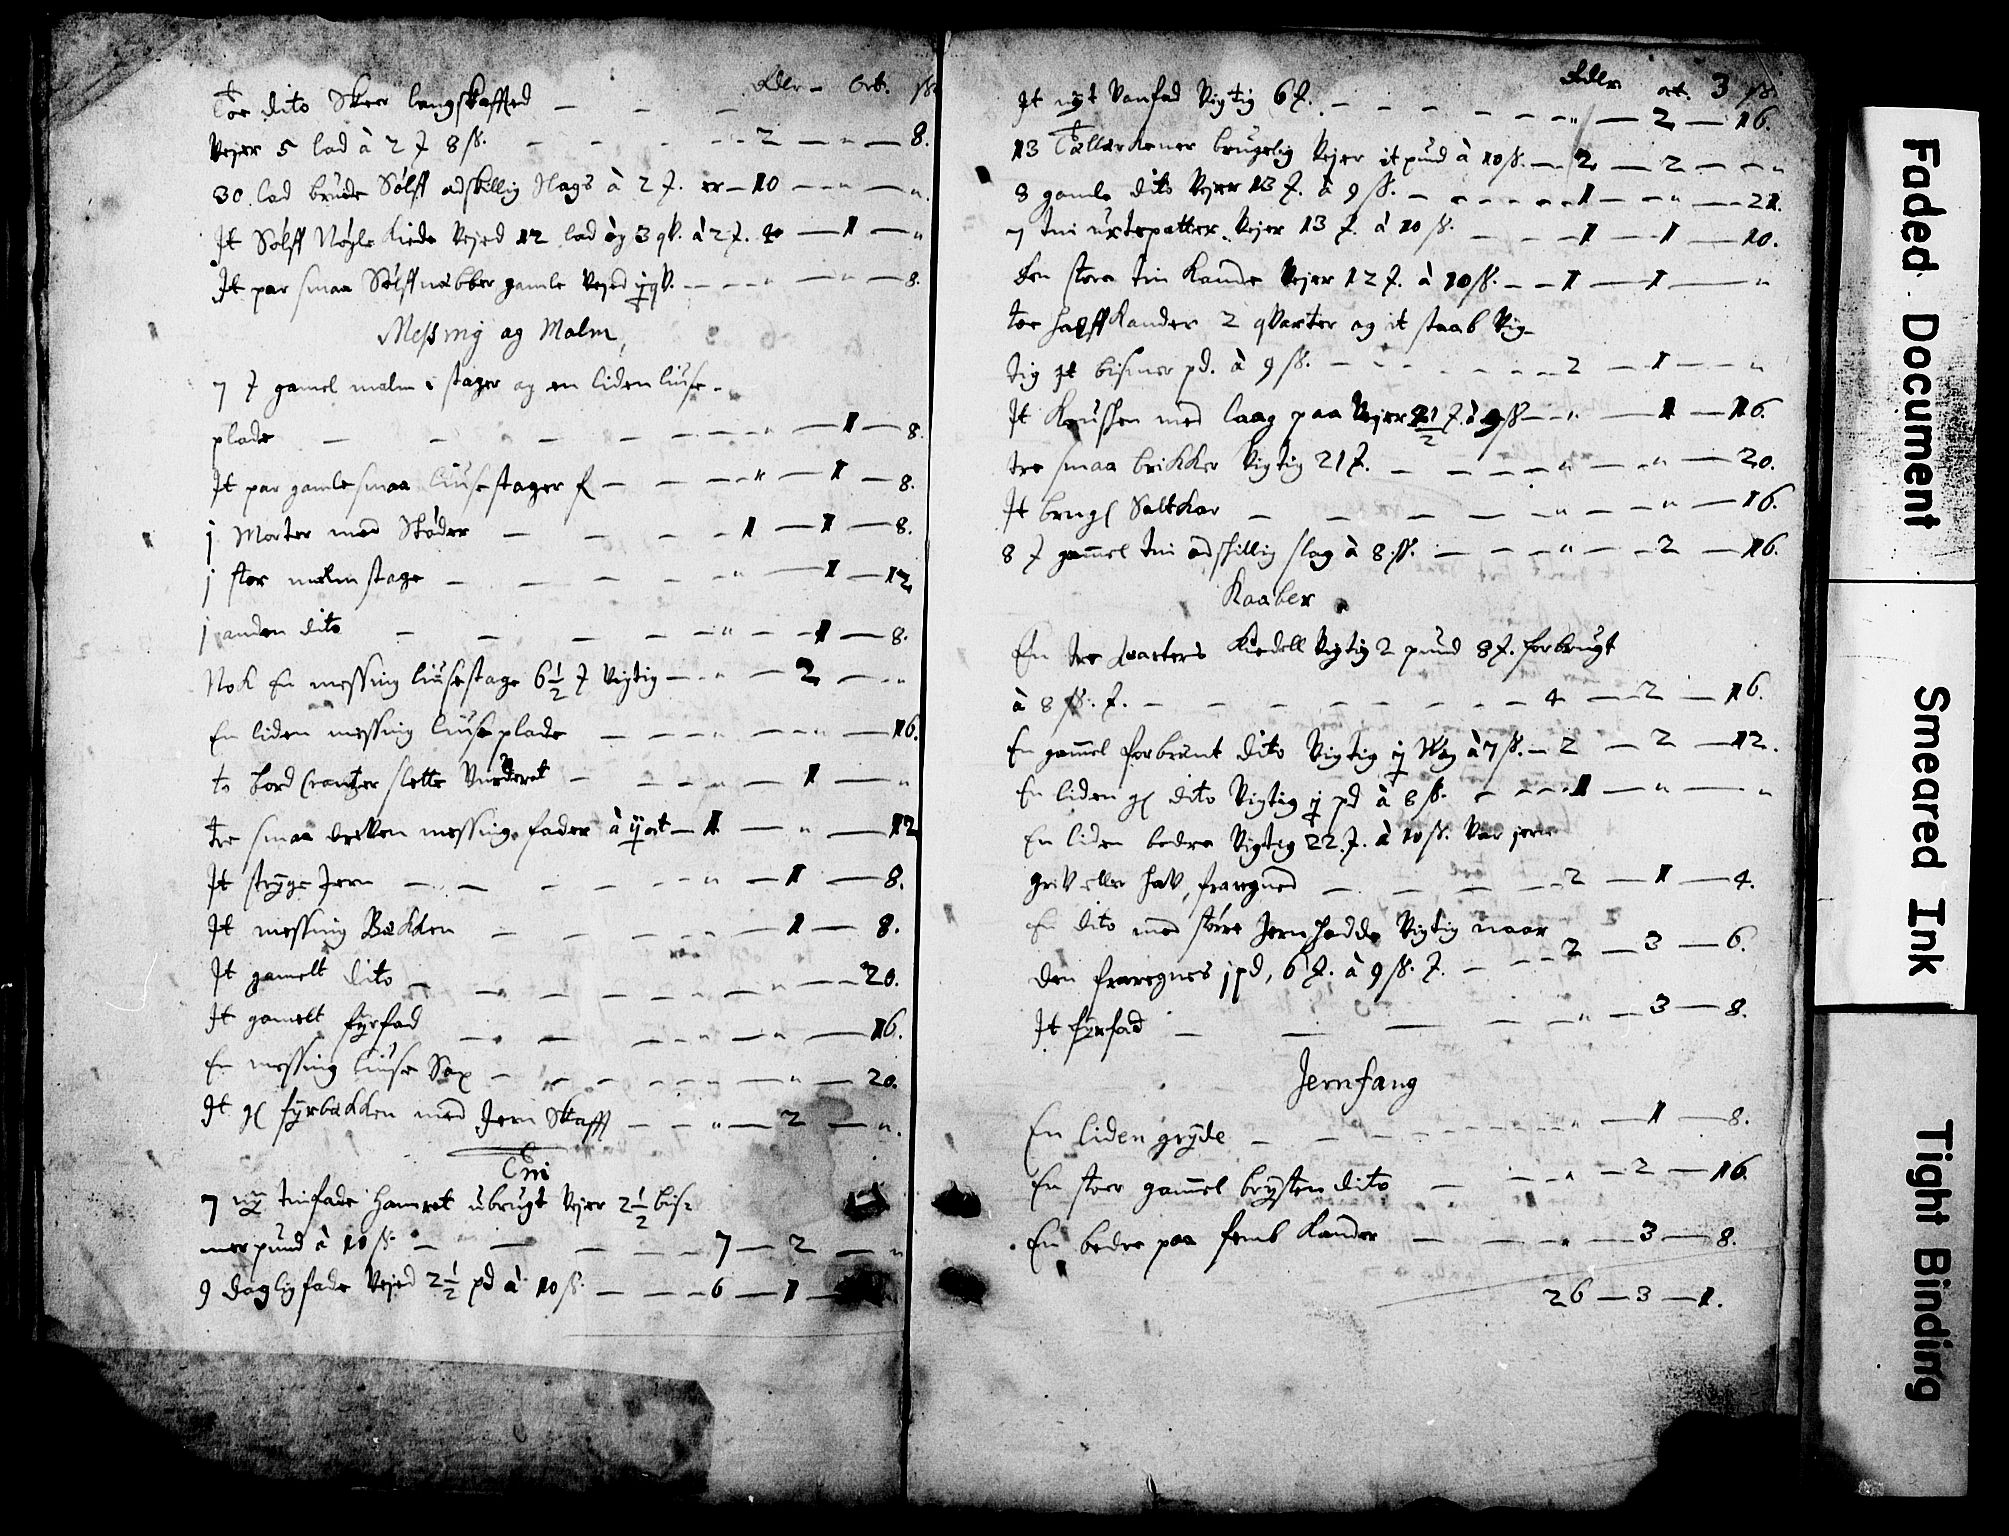 Rdlr - ort. ſß.
Toe dito Skeer langskaffted
Vejer 5 lod à 2 ƶ 8 ſß. — 2 — " — 8.
30 lod brude Sølff adskillig slags à 2 ƶ. er — 10 — " — ".
Jt Sølff Nøgle Kiede Vejed 12 lod og 3 qv. à 2 ƶ. — 1 — "
Jt par smaa Sølffnabber gamle Vejed — " — " — 8.
Messing og Malm,
7 ƶ gamel malm i stager og en liden liuse-
plade — " — 1 — 8.
Jt par gamle smaa liusestager — " — 1 — 8.
j Morter med Støder — 1 — 1 — 8.
j stor malm stage — " — 1 — 12
j anden dito — " — 1 — 8.
Nok En messing liusestage 6 1/2 ƶ Vigtig — " — 2 — "
En liden messing liuseplade — " — " — 16.
to bord Crantzer slette Vurderet — " — 1 — "
tre smaa dreven messings fader à ij ort — 1 — " — 12
Jt stryge Jern — " — 1 — 8.
Jt messing Bekken — " — 1 — 8.
Jt gamelt dito — " — " — 20.
Jt gamelt fyrfad — " — " — 16.
En messing liuse Sax — " — " — 20.
Jt gl fyrbekken med Jern Skafft — " — 2 — ".
Tin
7 ny tinfade hamret ubrugt Vejer 2 1/2 bis-
merpund à 10 ſß — 7 — 2 — "
9 daglig fade Vejed 2 1/2 pd à 10 ſß — 6 — 1 —
Rdlr. ort. 3 ſß.
Jt nyt Vanfad Vigtig 6 ƶ. — " — 2 — 16.
13 Tallerkener brugelig Vejer it pund à 10 ſß. — 2 — 2 — "
8 gamle dito Vejer 13 ƶ. à 9 ſß. — 1 — " — 21.
7 tin urtepotter Vejer 13 ƶ. à 10 ſß. — 1 — 1 — 10.
den store tin Kande Vejer 12 ƶ. à 10 ſß. — 1 — 1 — "
toe halff Kander 2 qvarter og it staab Vig-
tig Jt bismer pd. à 9 ſß. — 2 — 1 — "
Jt Krussen med laag paa Vejer ƶ. à 9 ſß — " — 1 — 16.
tre smaa brikker Vigtig 21 ƶ. — " — " — 20.
Jt brugl Saltkar — " — " — 16.
8 ƶ gamel tin adskillig slag à 8 ſß. — " — 2 — 16.
Kaaber
En tre qvarters Kiedell Vigtig 2 pund 8 ƶ. forbrugt
à 8 ſß. ƶ. — 4 — 2 — 16.
En gamel forbrent dito Vigtig à 7 ſß. — 2 — 2 — 12.
En liden gl dito Vigtig j pd à 8 ſß. — 1 — " — "
En liden bedre Vigtig 22 ƶ. à 10 ſß. Var jern
greV eller haV, fraregned — 2 — 1 — 4.
En dito med større Jern hadde Vigtig naar
den fraregnes j pd, 6 ƶ. à 9 ſß. ƶ. — 2 — 3 — 6.
Jt fyrfad — " — 3 — 8.
Jernfang
En liden gryde — " — 1 — 8.
En stoer gammel brøsten dito — " — 2 — 16.
En bedre paa femb Kander — " — 3 — 8.
26 — 3 — 1.
Faded Document
Smeared Ink
Tight Binding